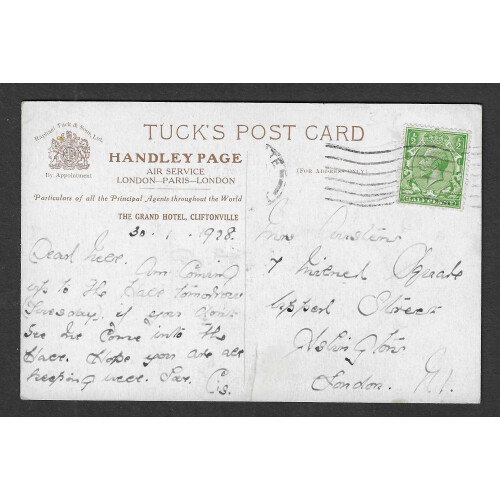 Raphael Tuck & Sons, Ltd.
By Appointment
TUCK'S POST CARD
HANDLEY PAGE
AIR SERVICE
LONDON–PARIS–LONDON
Particulars of all the Principal Agents throughout the World
THE GRAND HOTEL, CLIFTONVILLE
(FOR ADDRESS ONLY.)
30. 1. 1928.
Dear
Am Coming
up to the Place tomorrow
(Tuesday). if you don't
see me Come into the
Place. Hope you are all
keeping well. Cis.
Mrs Austin
7 Milner Square
Upper Street
Islington
London. N1.
HALFPENNY